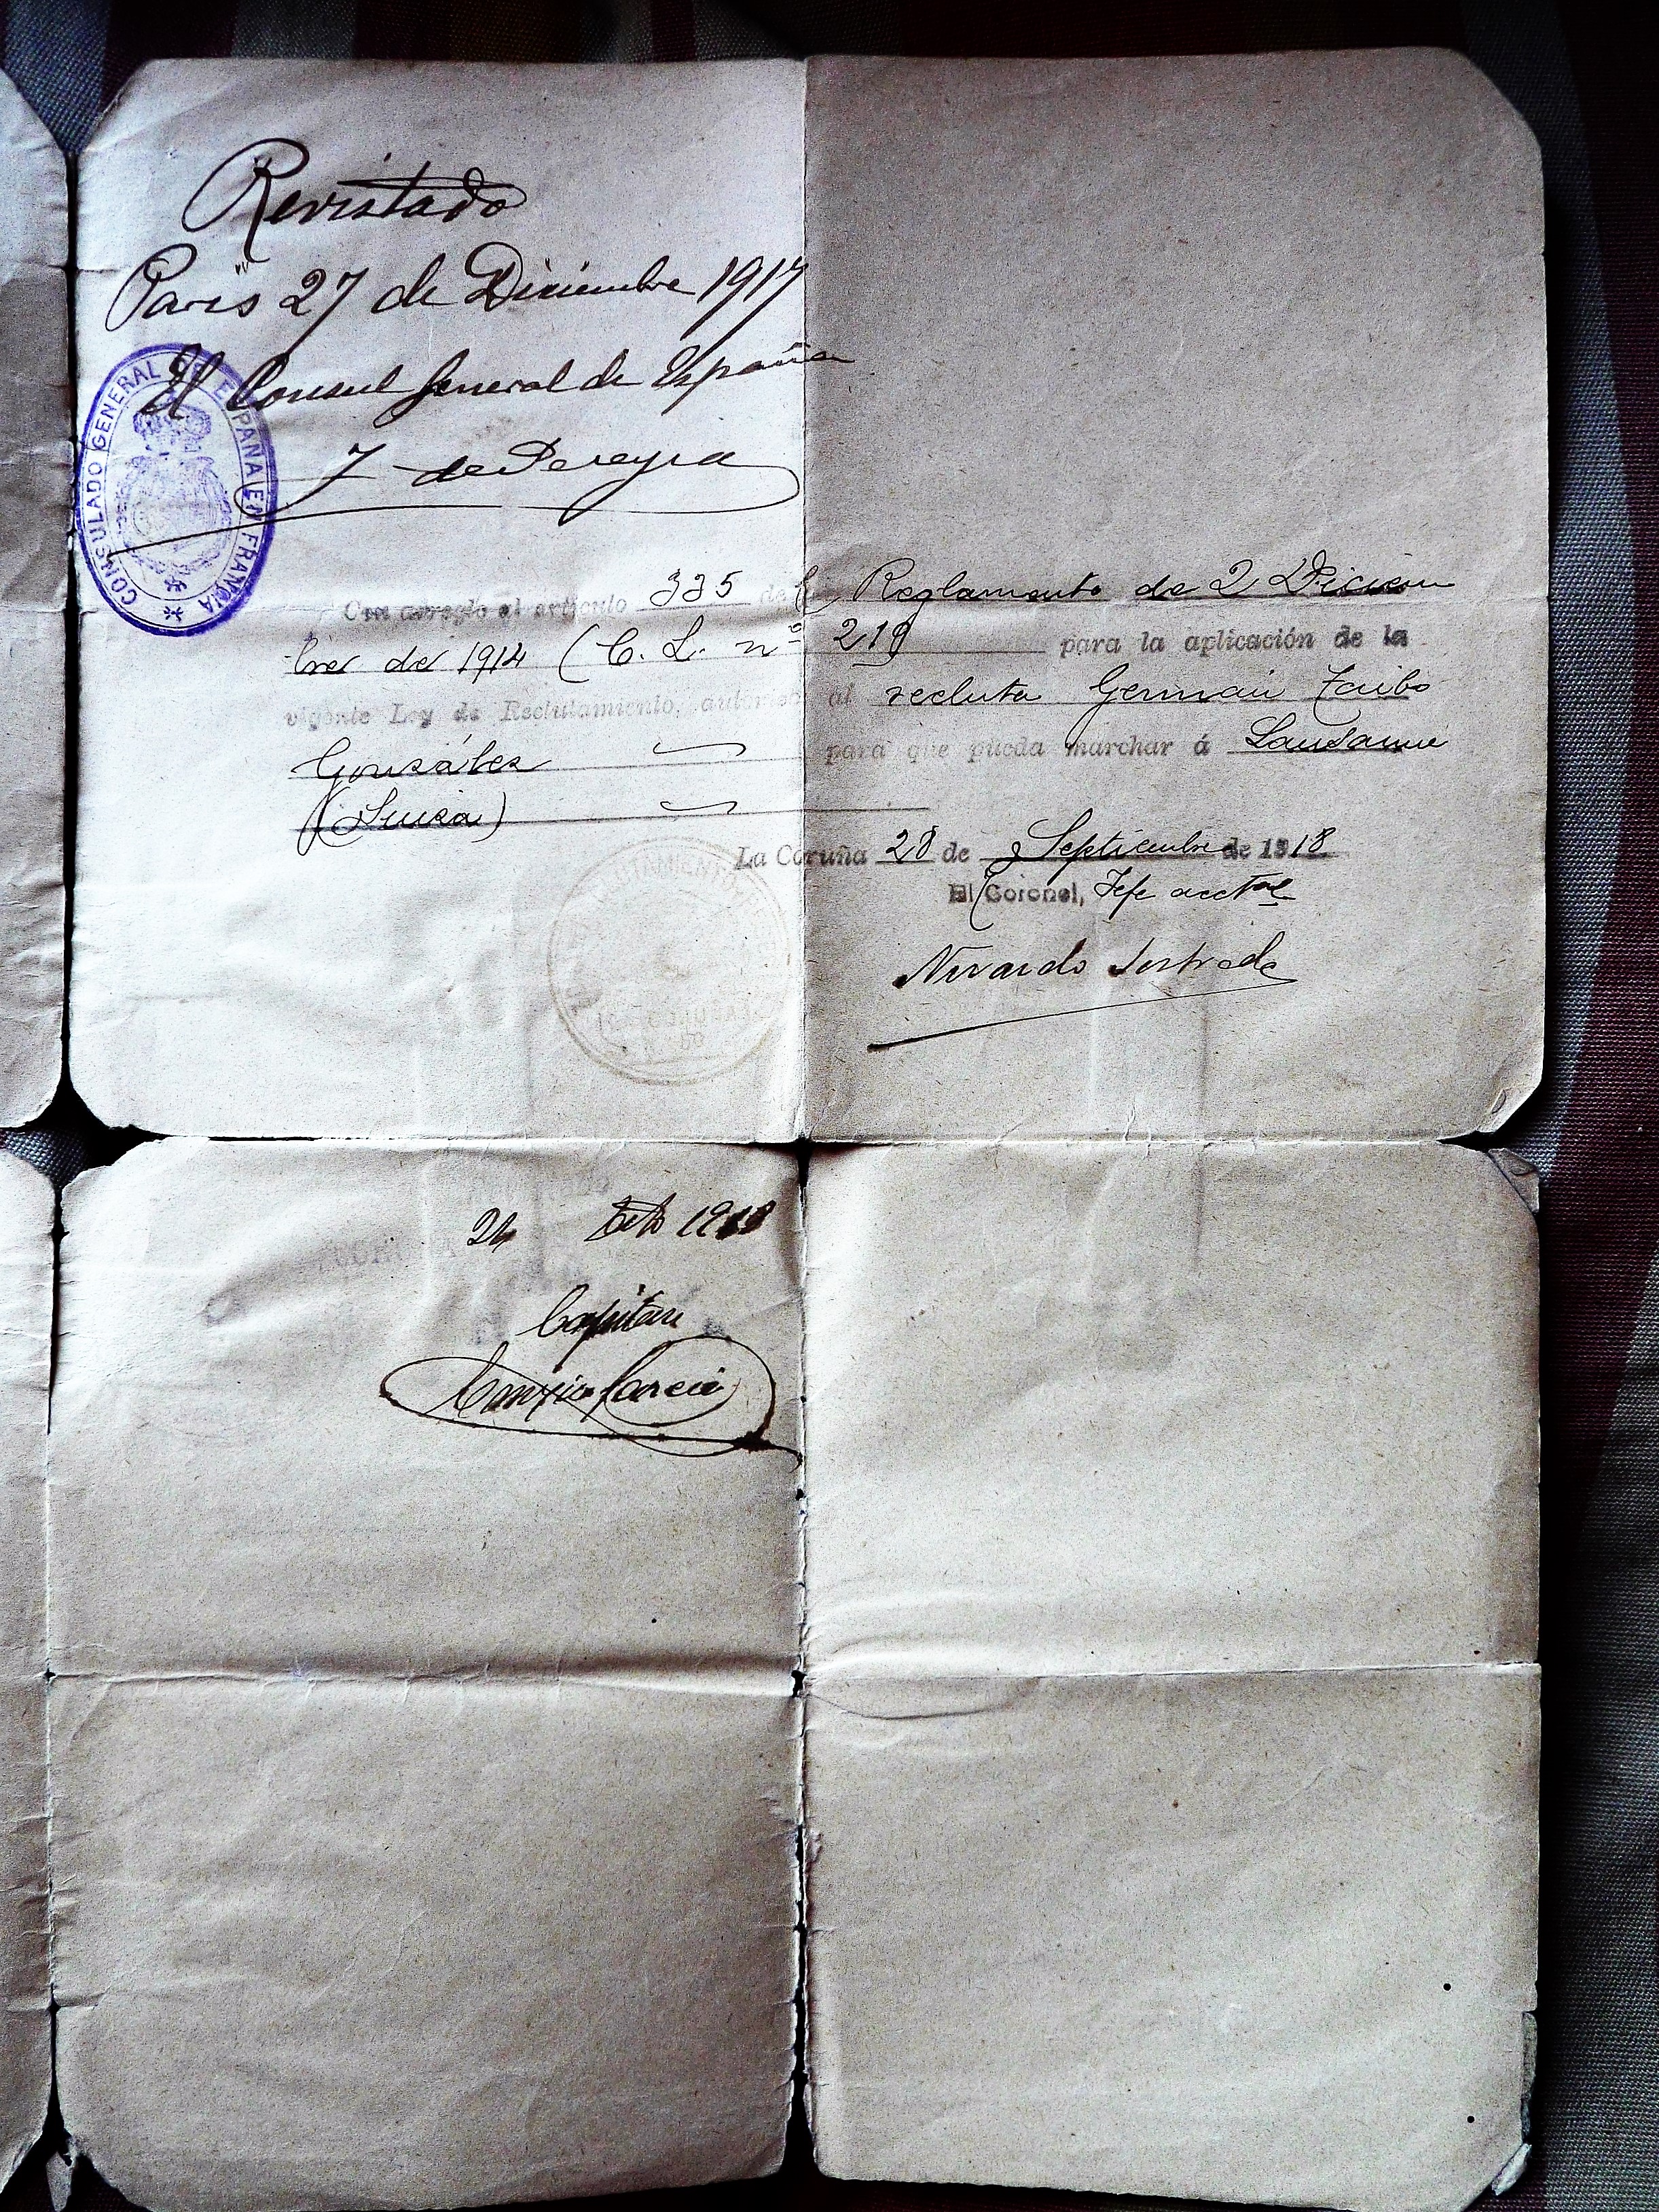 Revistado
Paris 27 de Diciembre 1917
El Consul General de España
de Pereyra
CONSULADO GENERAL DE ESPAÑA EN FRANCIA
Con arreglo al artículo 335 del Reglamento de 2 Diciem
bre de 1914 (C. L. nº 219 para la aplicación de la
vigente Ley de Reclutamiento, autorizo al recluta German Taibo
González para que pueda marchar á Lausanne
(Suiza)
La Coruña 28 de Septiembre de 1918
El Coronel, Jefe acctal
Estrada
CORUÑA
24 1918
Capitan
Garcia